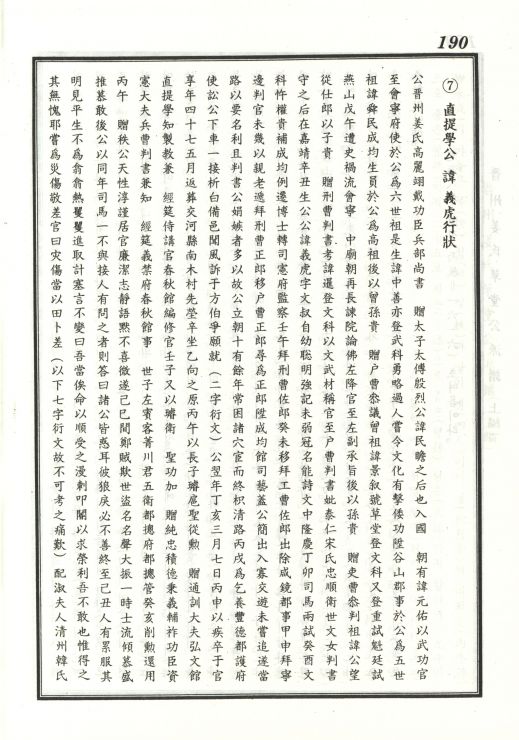 190
⑦ 直提學公 諱 義虎行狀
公晋州姜氏高麗翊戴功臣兵部尚書 贈太子太傅殷烈公諱民瞻之后也入國 朝有諱元佑以武功官
至會寧府使於公爲六世祖是生諱中善亦登武科勇略過人嘗令文化有擊倭功陞谷山郡事於公爲五世
祖諱舜民成均生員於公爲高祖後以曾孫貴 贈戶曹叅議曾祖諱景叙號草堂登文科又登重試魁廷試
燕山戊午遭史禍流會寧 中廟朝再長諫院論佛左降官至左副承旨後以孫貴 贈吏曹叅判祖諱公望
從仕郎以子貴 贈刑曹判書考諱暹登文科以文武材稱官至戶曹判書妣泰仁宋氏忠順衛世文女判書
守之后在嘉靖辛丑生公公諱義虎字文叔自幼聰明強記未弱冠名能詩文中隆慶丁卯司馬兩試癸酉文
科忤權貴補成均例遷博士轉司憲府監察壬午拜刑曹佐郎癸未移拜工曹佐郎出除咸鏡都事甲申拜寧
邊判官未幾以親老遞拜刑曹正郎移戶曹正郎尋爲正郎陞成均館司藝蓋公簡出入寡交遊未嘗追遂當
路以要名利且判書公娟嫉者多以故公立朝十有餘年常困諸穴宦而終枳清路丙戌爲乞養豐德都護府
使訟公下車一接析白備邑聞風訴于方伯爭願就(二字衍文)公翌年丁亥三月七日丙申以疾卒于官
享年四十七五月返葬交河縣南木村先塋辛坐乙向之原丙午以長子璿扈聖從勲 贈通訓大夫弘文館
直提學知製教兼 經筵侍講官春秋館編修官壬子又以璿衛 聖功加 贈純忠積德秉義輔祚功臣資
憲大夫兵曹判書兼知 經筵義禁府春秋館事 世子左賓客菁川君五衛都摠府都摠管癸亥削勲還用
丙午 贈秩公天性淳謹居官廉潔志靜語黙不喜微遂己巳間鄭賊欺世盜名名聲大振一時士流傾慕盛
推慕敢後公以同年司馬一不與接人有問之者則答曰諸公皆惑耳彼狼戾必不善終至己丑人有累服其
明見平生不爲翕翕熱矍矍進取計塞言不變曰吾當俟命以順受之漫刺叩閽以求榮利吾不敢也惟得之
其無愧耶嘗爲災傷敬差官曰灾傷當以田卜差(以下七字衍文故不可考之痛歎)配淑夫人清州韓氏